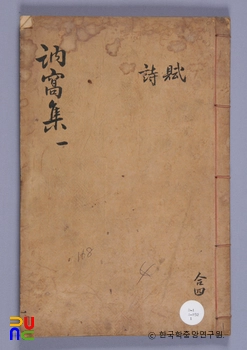 訥窩集 一
賦
詩
合四
168
ⓒ 한국학중앙연구원